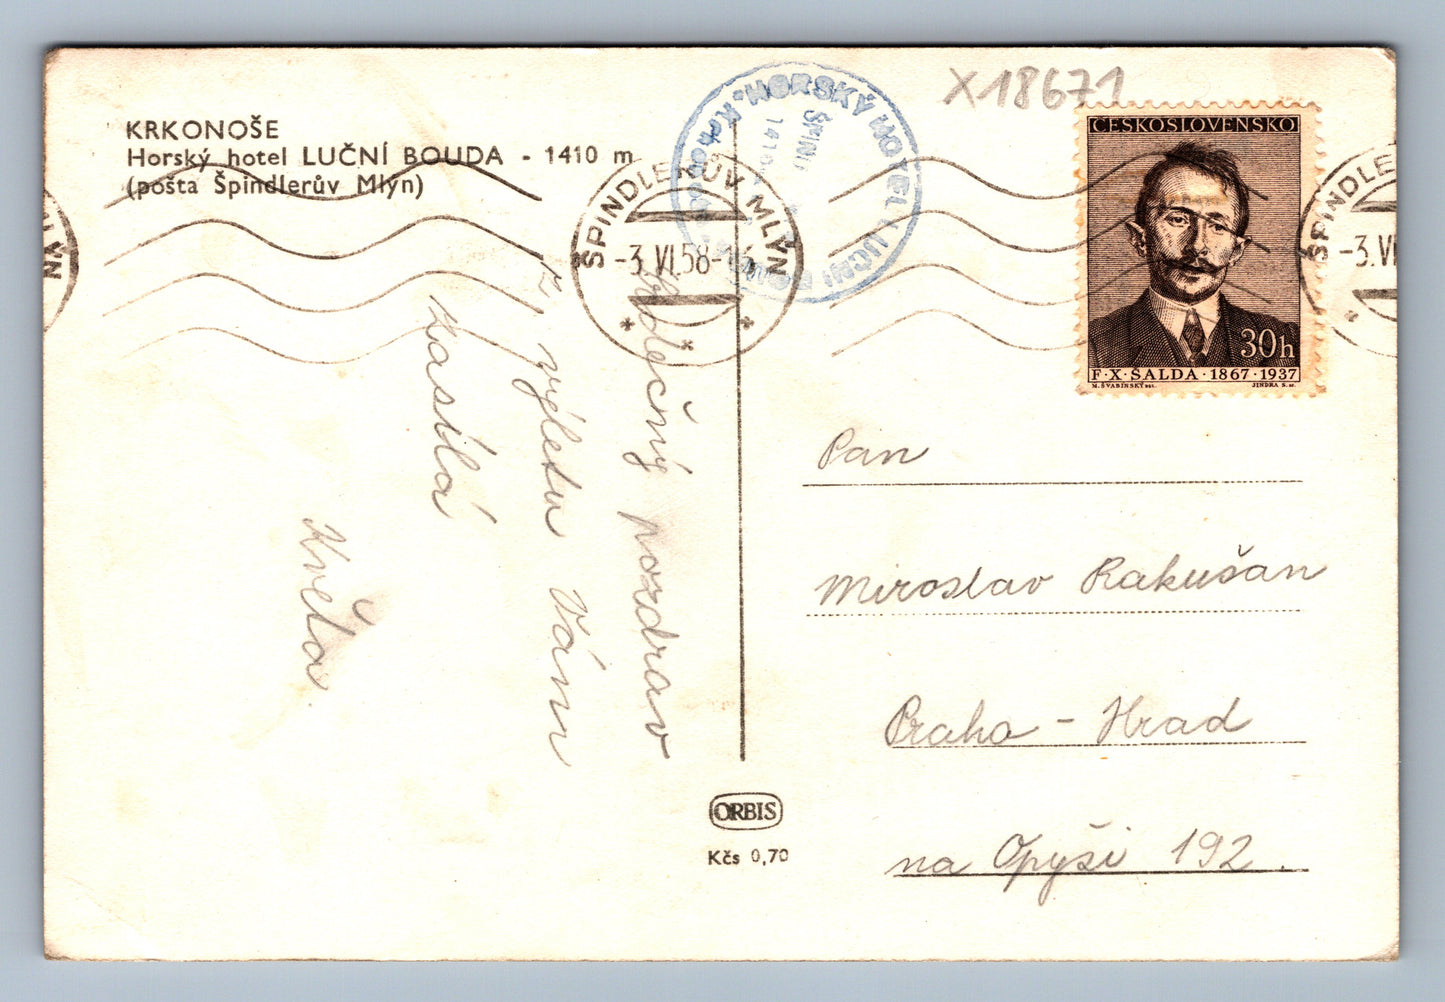 KRKONOŠE
Horský hotel LUČNÍ BOUDA - 1410 m
(pošta Špindlerův Mlýn)
X18671
HORSKÝ HOTEL LUČNÍ
1410
ŠPINDLERŮV MLÝN
-3.VI.58-
ČESKOSLOVENSKO
30h
F·X·ŠALDA·1867·1937
M. ŠVABINSKÝ
JINDRA S.
ŠPINDLE
-3.VI
LÝN
Srdečný pozdrav
z výletu Vám
zasílá
Květa.
Pan
Miroslav Rakušan
Praha - Hrad
na Opyši 192.
ORBIS
Kčs 0,70